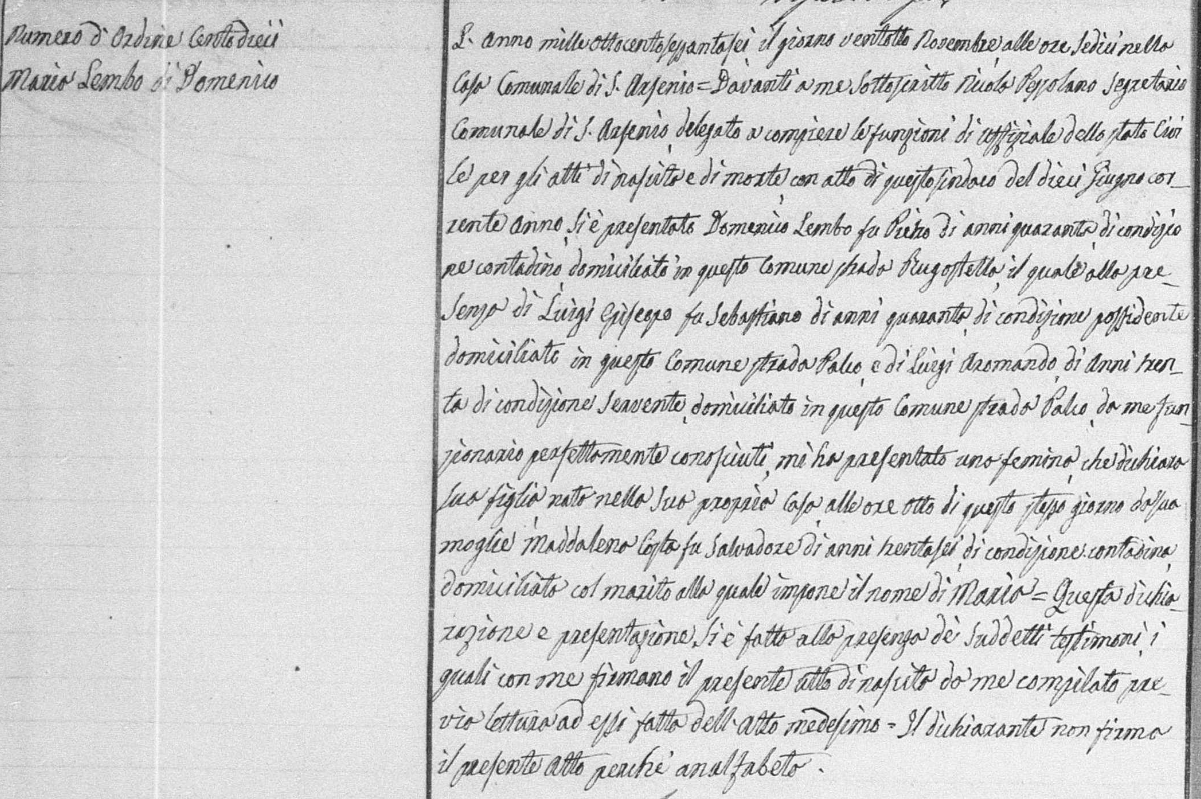 Numero d'Ordine Centodieci
Maria Lembo di Domenico
L'Anno mille ottocentosessantasei il giorno ventotto Novembre alle ore Sedici nella
Casa Comunale di S. Arsenio = Davanti a me Sottoscritto Nicola Pessolano Segretario
Comunale di S. Arsenio, delegato a compiere le funzioni di Uffiziale dello stato Civi
le per gli atti di nascita e di morte, con atto di questo sindaco del dieci Giugno cor-
rente Anno, Si è presentato Domenico Lembo fu Pietro di anni quaranta, di condizio
ne contadino, domiciliato in questo Comune strada, il quale alla pre-
senza di Luigi fu Sebastiano di anni quaranta, di condizione possidente
domiciliato in questo Comune strada Palco, e di Luigi Aromando, di Anni tren-
ta di condizione Servente, domiciliato in questo Comune strada Palco, da me fun
zionario perfettamente conosciuti, mi ha presentato una femina, che dichiara
sua figlia nata nella Sua propria Casa, alle ore otto di questo stesso giorno da sua
moglie Maddalena Costa fu Salvadore, di anni trentasei, di condizione contadina,
domiciliata col marito alla quale impone il nome di Maria = Questa dichia-
razione e presentazione, Si è fatta alla presenza de' Suddetti testimoni, i
quali con me firmano il presente atto di nascita da me compilato pre-
via lettura ad essi fatta dell'Atto medesimo = Il dichiarante non firma
il presente Atto perchè analfabeto.